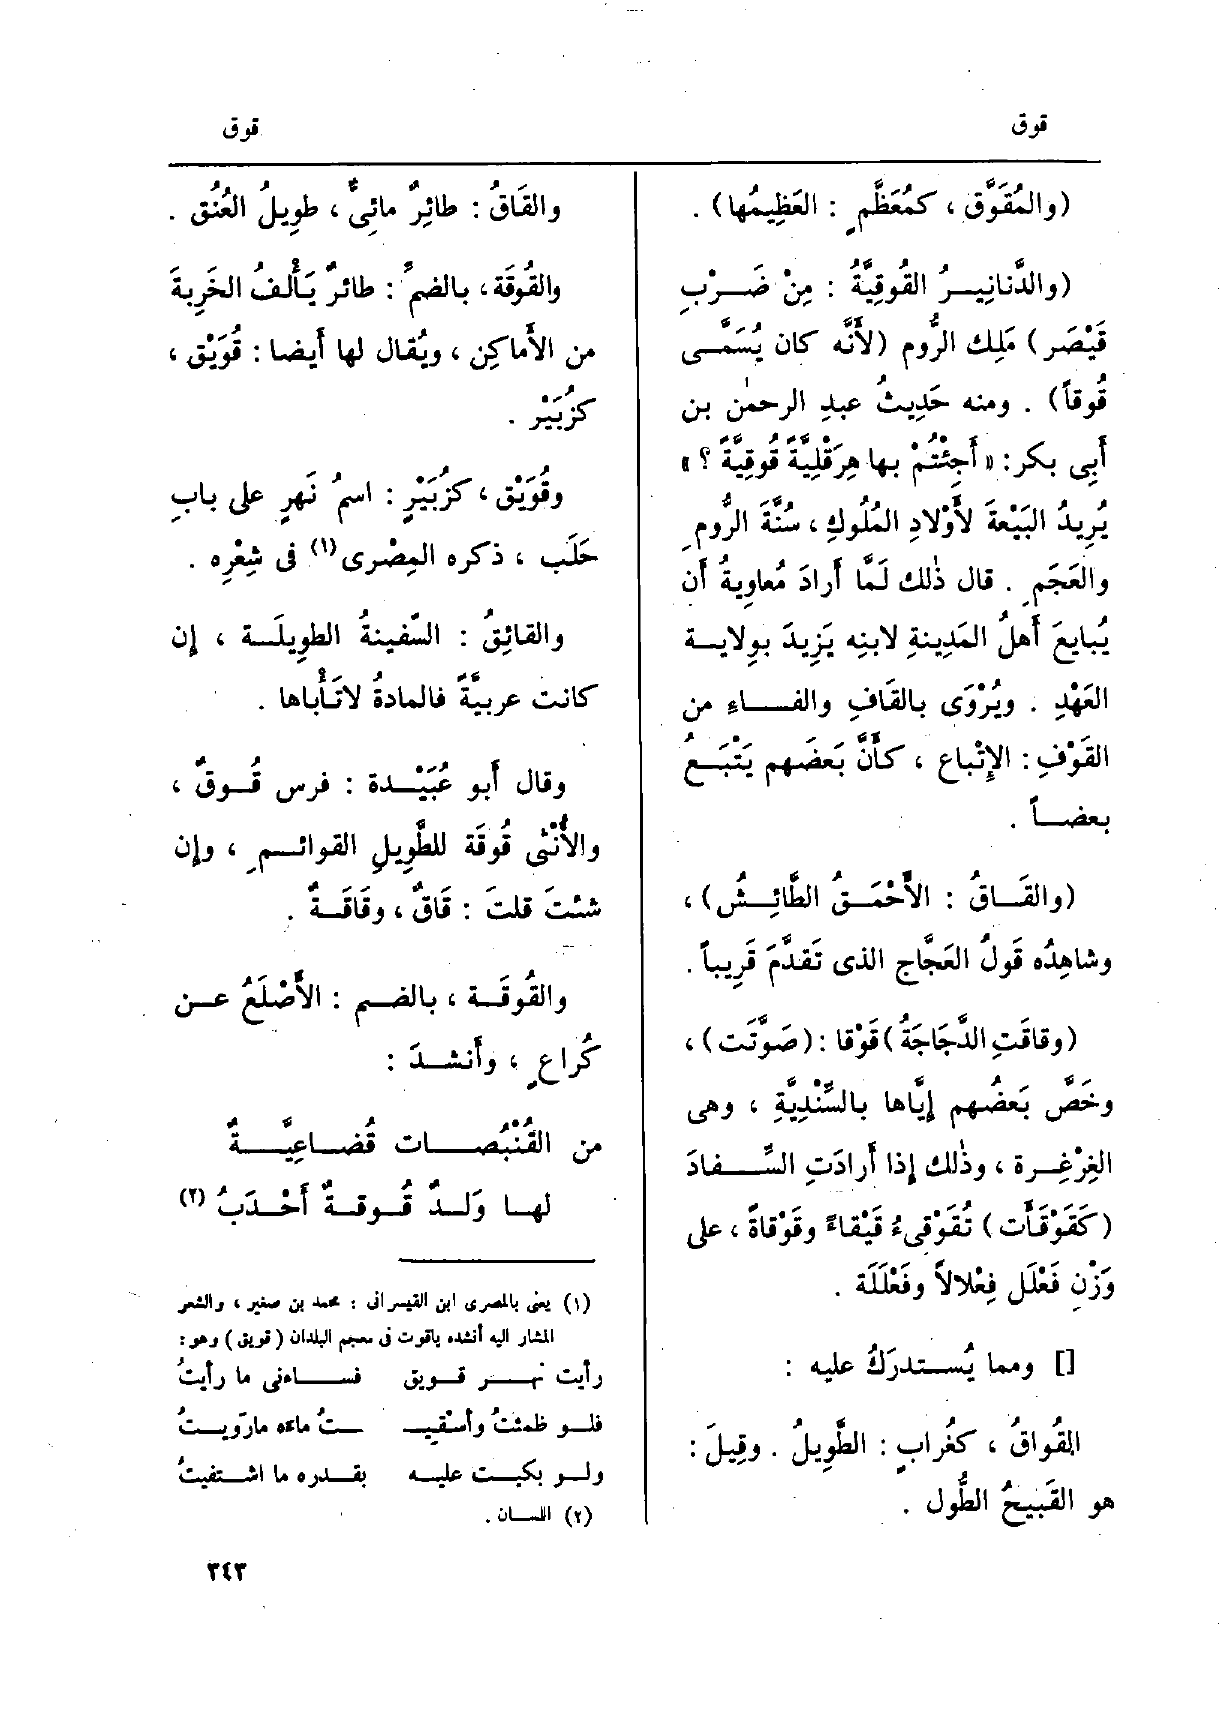 قوق
قوق
(والمُقَوَّق ، كمُعَظَّمٍ : العَظِيمُها) .
(والدَّنانِيـرُ القُوقِيَّةُ : مِنْ ضَـرْبِ
قَيْصَر) مَلِك الرُّوم (لأَنَّه كان يُسَمَّـى
قُوقاً) . ومنه حَدِيثُ عبدِ الرحمٰن بن
أَبِى بكر: «أَجِئْتُمْ بها هِرَقْلِيَّةً قُوقِيَّةً ؟»
يُرِيدُ البَيْعةَ لأَوْلادِ المُلُوكِ ، سُنَّةَ الرُّومِ
والعَجَمِ . قال ذٰلك لَمَّا أَرادَ مُعاويةُ أَن
يُبايعَ أَهلُ المَدِينةِ لابنِه يَزِيدَ بوِلايـة
العَهْدِ . ويُرْوَى بالقَافِ والفـاءِ من
القَوْفِ : الإِتْباع ، كأَنَّ بَعضَهم يَتْبَـعُ
بعضـاً .
(والقَـاقُ : الأَحْمَـقُ الطَّائِـشُ) ،
وشاهِدُه قَولُ العَجَّاج الذى تَقدَّمَ قَرِيباً .
(وقاقَتِ الدَّجَاجَةُ) قَوْقا : (صَوَّتَت) ،
وخَصَّ بَعضُهم إيَّاها بالسِّنْدِيَّةِ ، وهى
الغِرْغِـرة ، وذٰلك إذا أَرادَتِ السِّفـادَ
(كَقَوْقَأَت) تُقَوْقِىءُ قَيْقاءً وقَوْقاةً ، على
وَزْنِ فَعْلَل فِعْلالاً وفَعْلَلَة .
[] ومما يُسـتدرَكُ عليه :
القُواقُ ، كغُرابٍ : الطَّوِيلُ . وقِيلَ :
هو القَبيحُ الطُّول .
والقَاقُ : طائِرٌ مائِىٌّ ، طوِيلُ العُنُق .
والقُوقَة، بالضمِّ : طائرٌ يَأْلفُ الخَرِبةَ
من الأَماكِن ، ويُقال لها أَيضا : قُوَيْق ،
كزُبَيْر .
وقُوَيْق ، كزُبَيْرٍ : اسمُ نَهرٍ على بابِ
حَلَب ، ذكره المِصْرى(١) فى شِعْرِه .
والقائِقُ : السَّفينةُ الطوِيلَـة ، إن
كانت عربيَّةً فالمادةُ لاتَأْباها .
وقال أَبو عُبَيْـدة : فرس قُـوقٌ ،
والأُنْثى قُوقَة للطَّوِيلِ القوائـمِ ، وإن
شئتَ قلتَ : قَاقٌ ، وقَاقَـةٌ .
والقُوقَـة ، بالضـم : الأَصْلَعُ عـن
كُراعٍ ، وأَنشـدَ :
من القُنْبُصـات قُضـاعِيَّـةٌ
لهـا وَلـدٌ قُـوقـةٌ أَحْـدَبُ (٢)
(١) يعنى بالمصرى ابن القيسرانى : محمد بن صغير ، والشعر
المشار اليه أنشده ياقوت فى معجم البلدان (قويق) وهو :
رأيت نهـر قـويق فسـاءنى ما رأيتُ
فلـو ظمئتُ وأسْقِيـ ـتُ ماءه مارَوِيـتُ
ولـو بكيـت عليـه بقـدره ما اشـتفيتُ
(٢) اللسـان .
٣٤٣